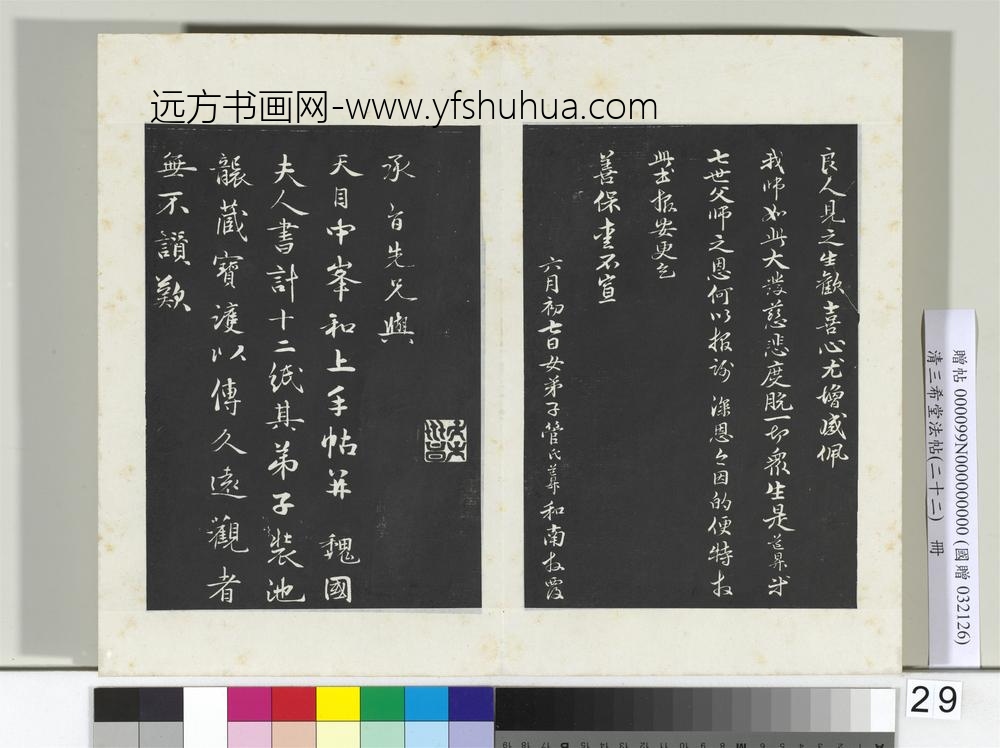 远方书画网-www.yfshuhua.com
良人見之生歡喜心尤增感佩
我師如此大發慈悲度脫一切眾生是道昇
七世父師之恩何以報謝 深恩今因的便特
此報安更乞
善保重不宣
六月初七日女弟子管氏 和南
承旨先兄與
天目中峯和上手帖并 魏國
夫人書計十二紙其弟子裝池
襲藏寶護以傳久遠觀者
無不讚歎
贈帖 000099N000000000 (國贈 032126)
清三希堂法帖(二十二) 冊
29